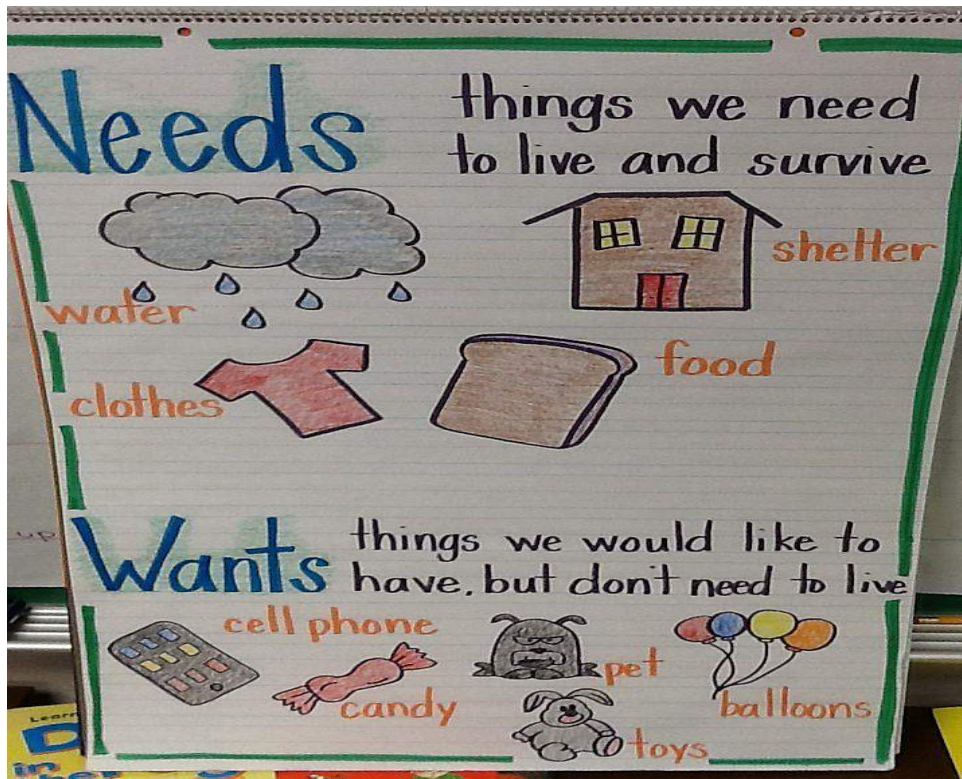 Needs
things we need
to live and survive
water
shelter
clothes
food
up
Wants
things we would like to
have, but don't need to live
cell phone
candy
pet
toys
balloons
Learn
in